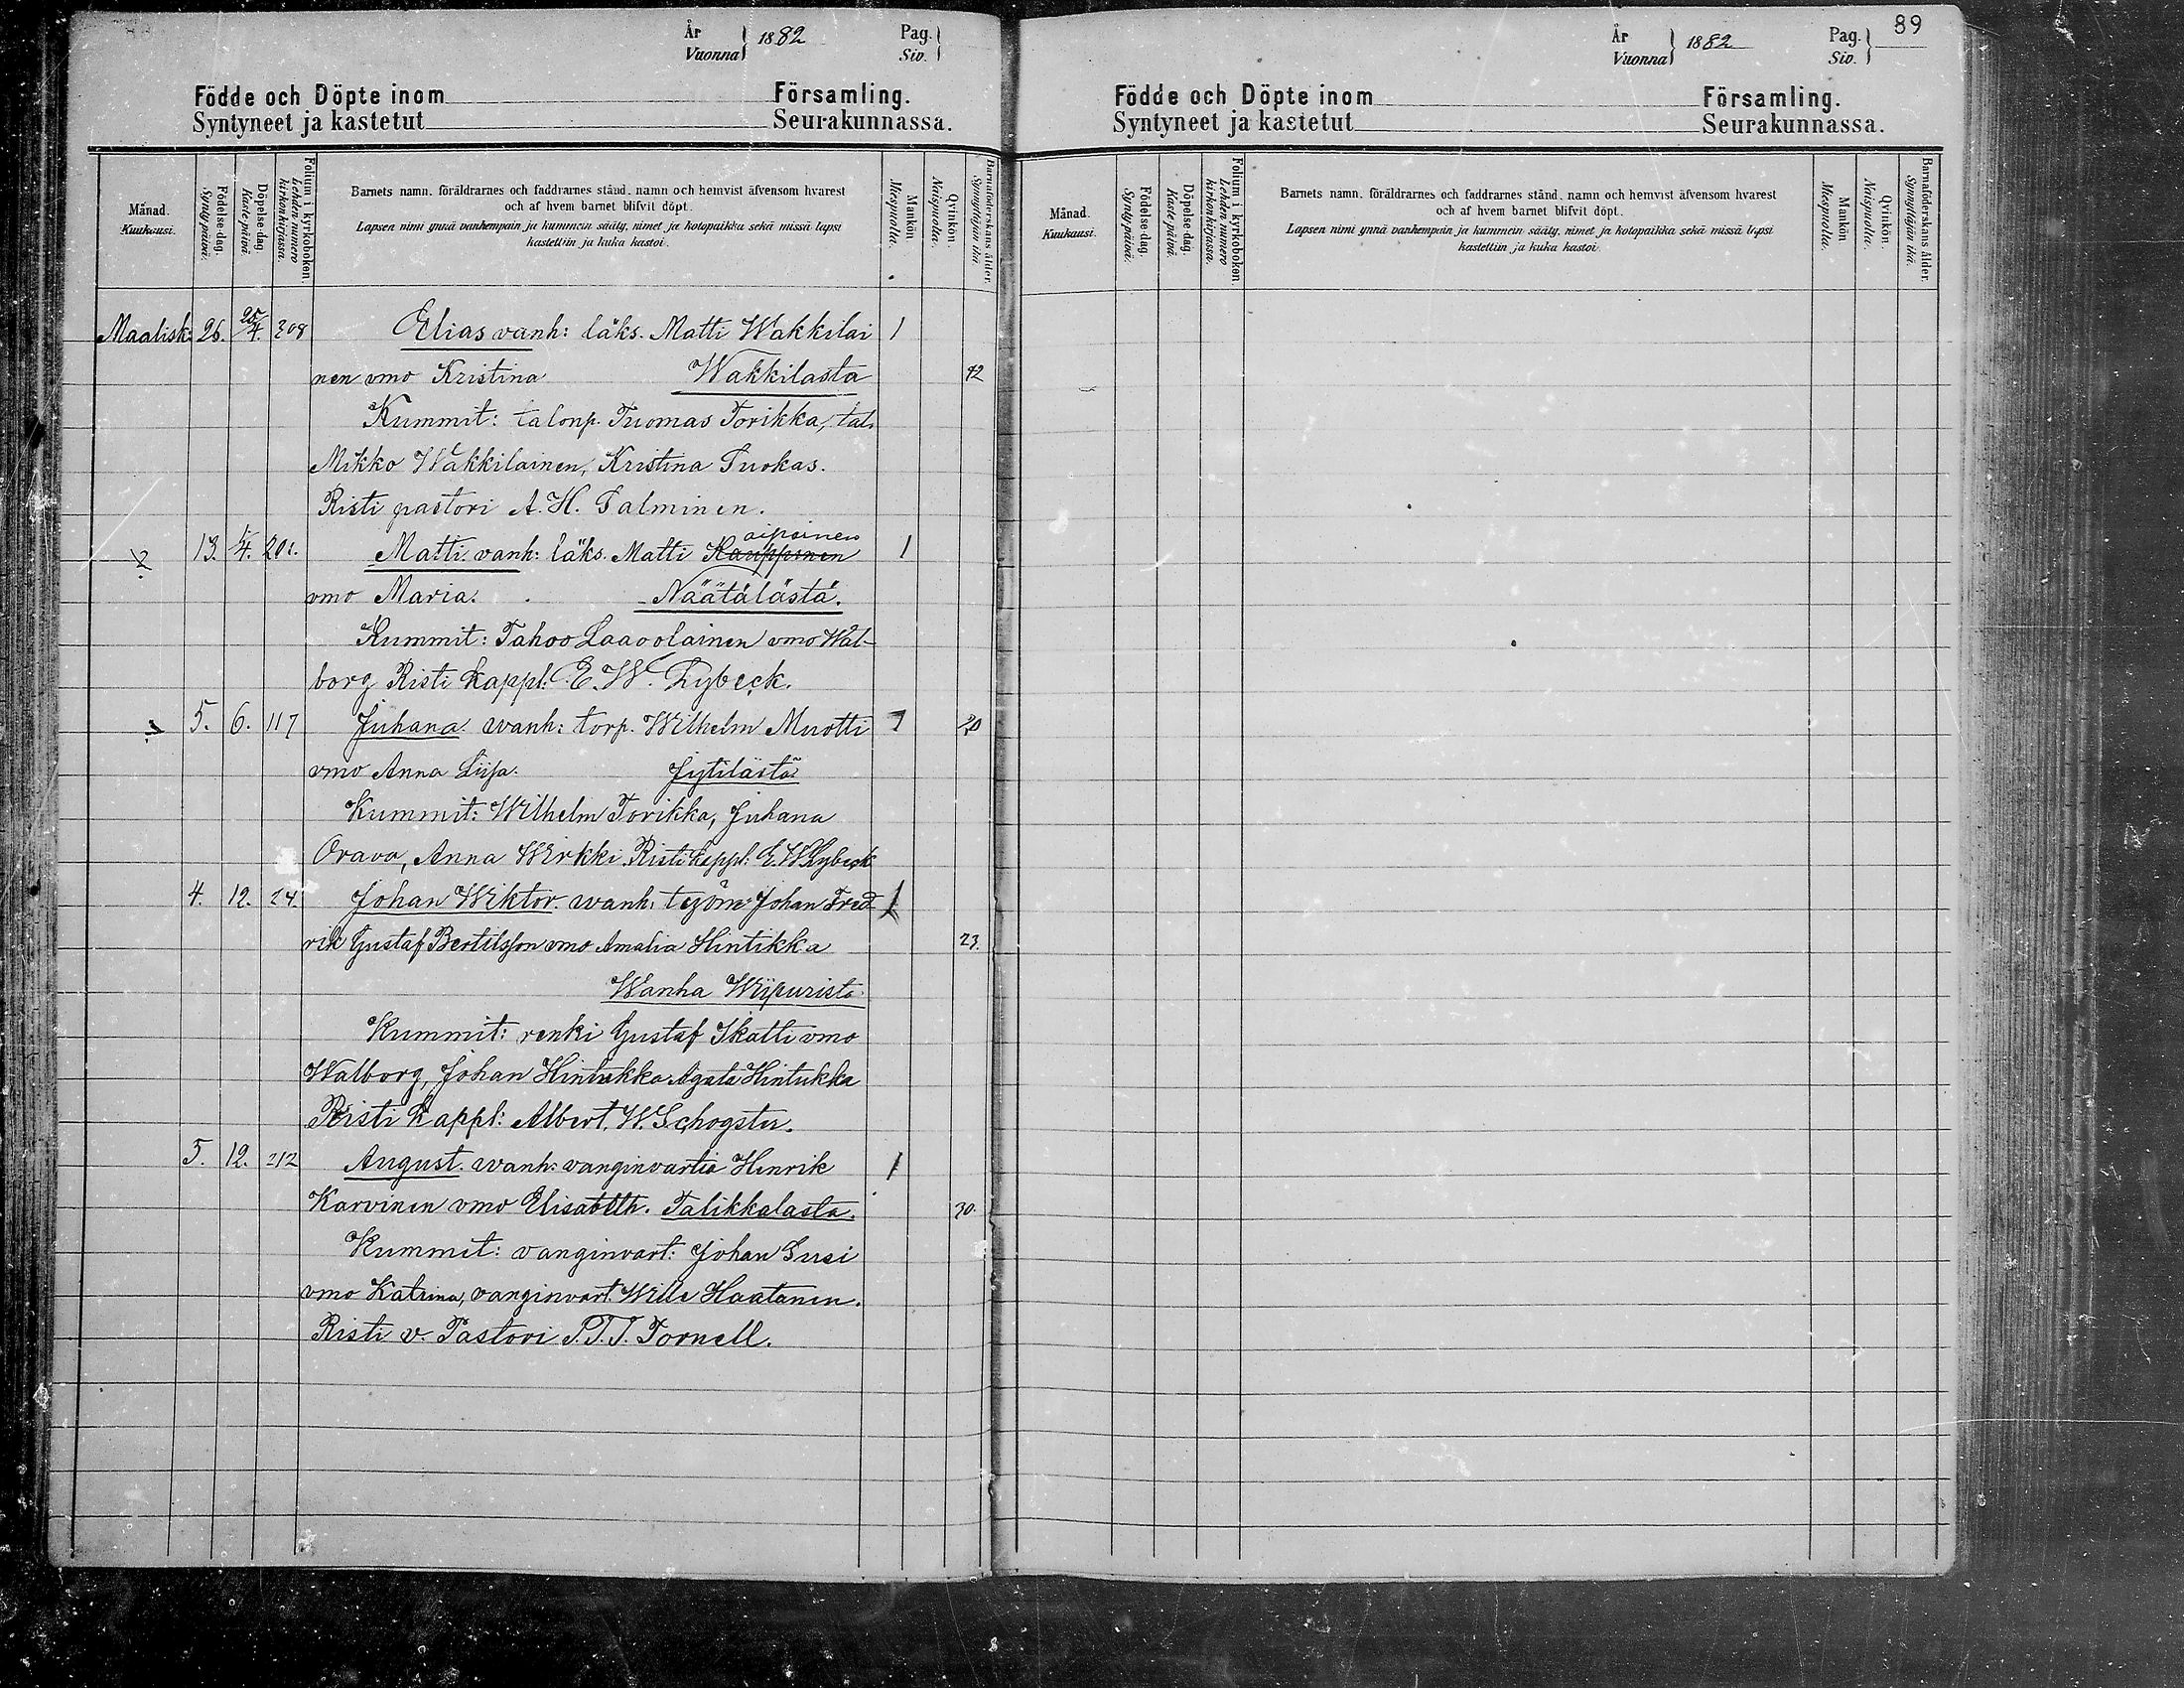 År
Vuonna
1882
Pag.
Siv.
Födde och Döpte inom Församling.
Syntyneet ja kastetut Seurakunnassa.
Månad.
Kuukausi.
Födelse-dag.
Syntypäivä.
Döpelse-dag.
Kastepäivä.
Folium i kyrkoboken.
Lehden numero kirkonkirjassa.
Barnets namn, föräldrarnes och faddrarnes stånd, namn och hemvist äfvensom hvarest
och af hvem barnet blifvit döpt.
Lapsen nimi ynnä vanhempain ja kummein sääty, nimet ja kotopaikka sekä missä lapsi
kastettiin ja kuka kastoi.
Mankön.
Miespuolia.
Qvinkön.
Naispuolia.
Barnaföderskans ålder.
Synnyttäjän ikä.
Maalisk: 26. 25/4. 308 Elias vanh: läks. Matti Wakkilai 1
nen vmo Kristina Wakkilasta 42
Kummit: talonp. Tuomas Torikka, tal.
Mikko Wakkilainen, Kristina Tuokas.
Risti pastori A. H. Talminen.
aipainen
13. /4. Matti vanh: läks. Matti Kauppinen 1
vmo Maria. Näätälästä.
Kummit: Tahvo Laavolainen vmo Wal-
borg Risti kappl: E. W. Lybeck.
5. 6. 117 Juhana. wanh: torp. Wilhelm Muotti 1 20
vmo Anna Liisa. Jytilästä
Kummit: Wilhelm Torikka, Juhana
Orava, Anna Wirkki. Risti kappl: E. W. Lybeck
4. 12. 24. Johan Wiktor. wanh. työm: Johan Fred 1
rik Gustaf Bertilsson vmo Amalia Hintikka 23.
Wanha Wiipurista
Kummit: renki Gustaf Skatti vmo
Walborg, Johan Hintukka Agata Hintukka
Risti kappl: Albert. W. Schogster.
5. 12. 212 August. wanh: vanginvartia Henrik 1
Karvinen vmo Elisabeth. Talikkalasta. 30.
Kummit: vanginvart: Johan Susi
vmo Katrina, vanginvart. Wille Haatanen.
Risti v. Pastori P.T.T. Tornell.
89
År
Vuonna
1882
Pag.
Siv.
Födde och Döpte inom Församling.
Syntyneet ja kastetut Seurakunnassa.
Månad.
Kuukausi.
Födelse-dag.
Syntypäivä.
Döpelse-dag.
Kastepäivä.
Folium i kyrkoboken.
Lehden numero kirkonkirjassa.
Barnets namn, föräldrarnes och faddrarnes stånd, namn och hemvist äfvensom hvarest
och af hvem barnet blifvit döpt.
Lapsen nimi ynnä vanhempain ja kummein sääty, nimet ja kotopaikka sekä missä lapsi
kastettiin ja kuka kastoi.
Mankön
Miespuolia.
Qvinkön.
Naispuolia.
Barnaföderskans ålder.
Synnyttäjän ikä.